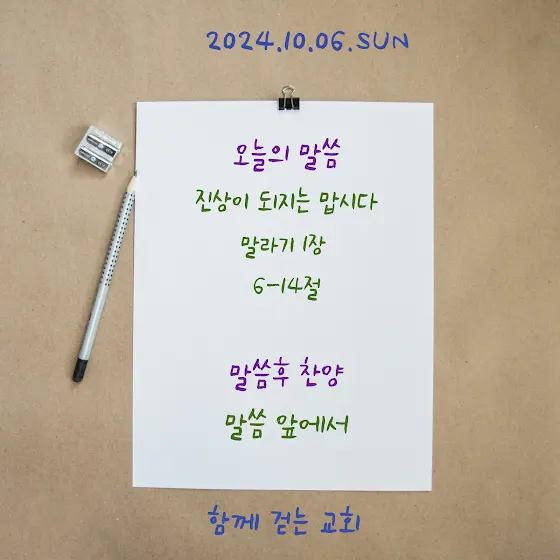 2024.10.06.SUN
오늘의 말씀
진상이 되지는 맙시다
말라기 1장
6-14절
말씀후 찬양
말씀 앞에서
함께 걷는 교회